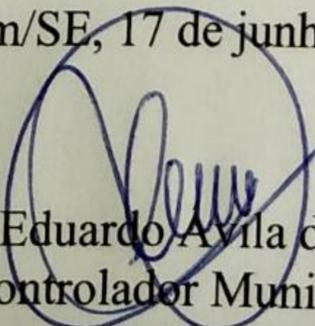 m/SE, 17 de junh
Eduardo Ávila d
ontrolador Muni